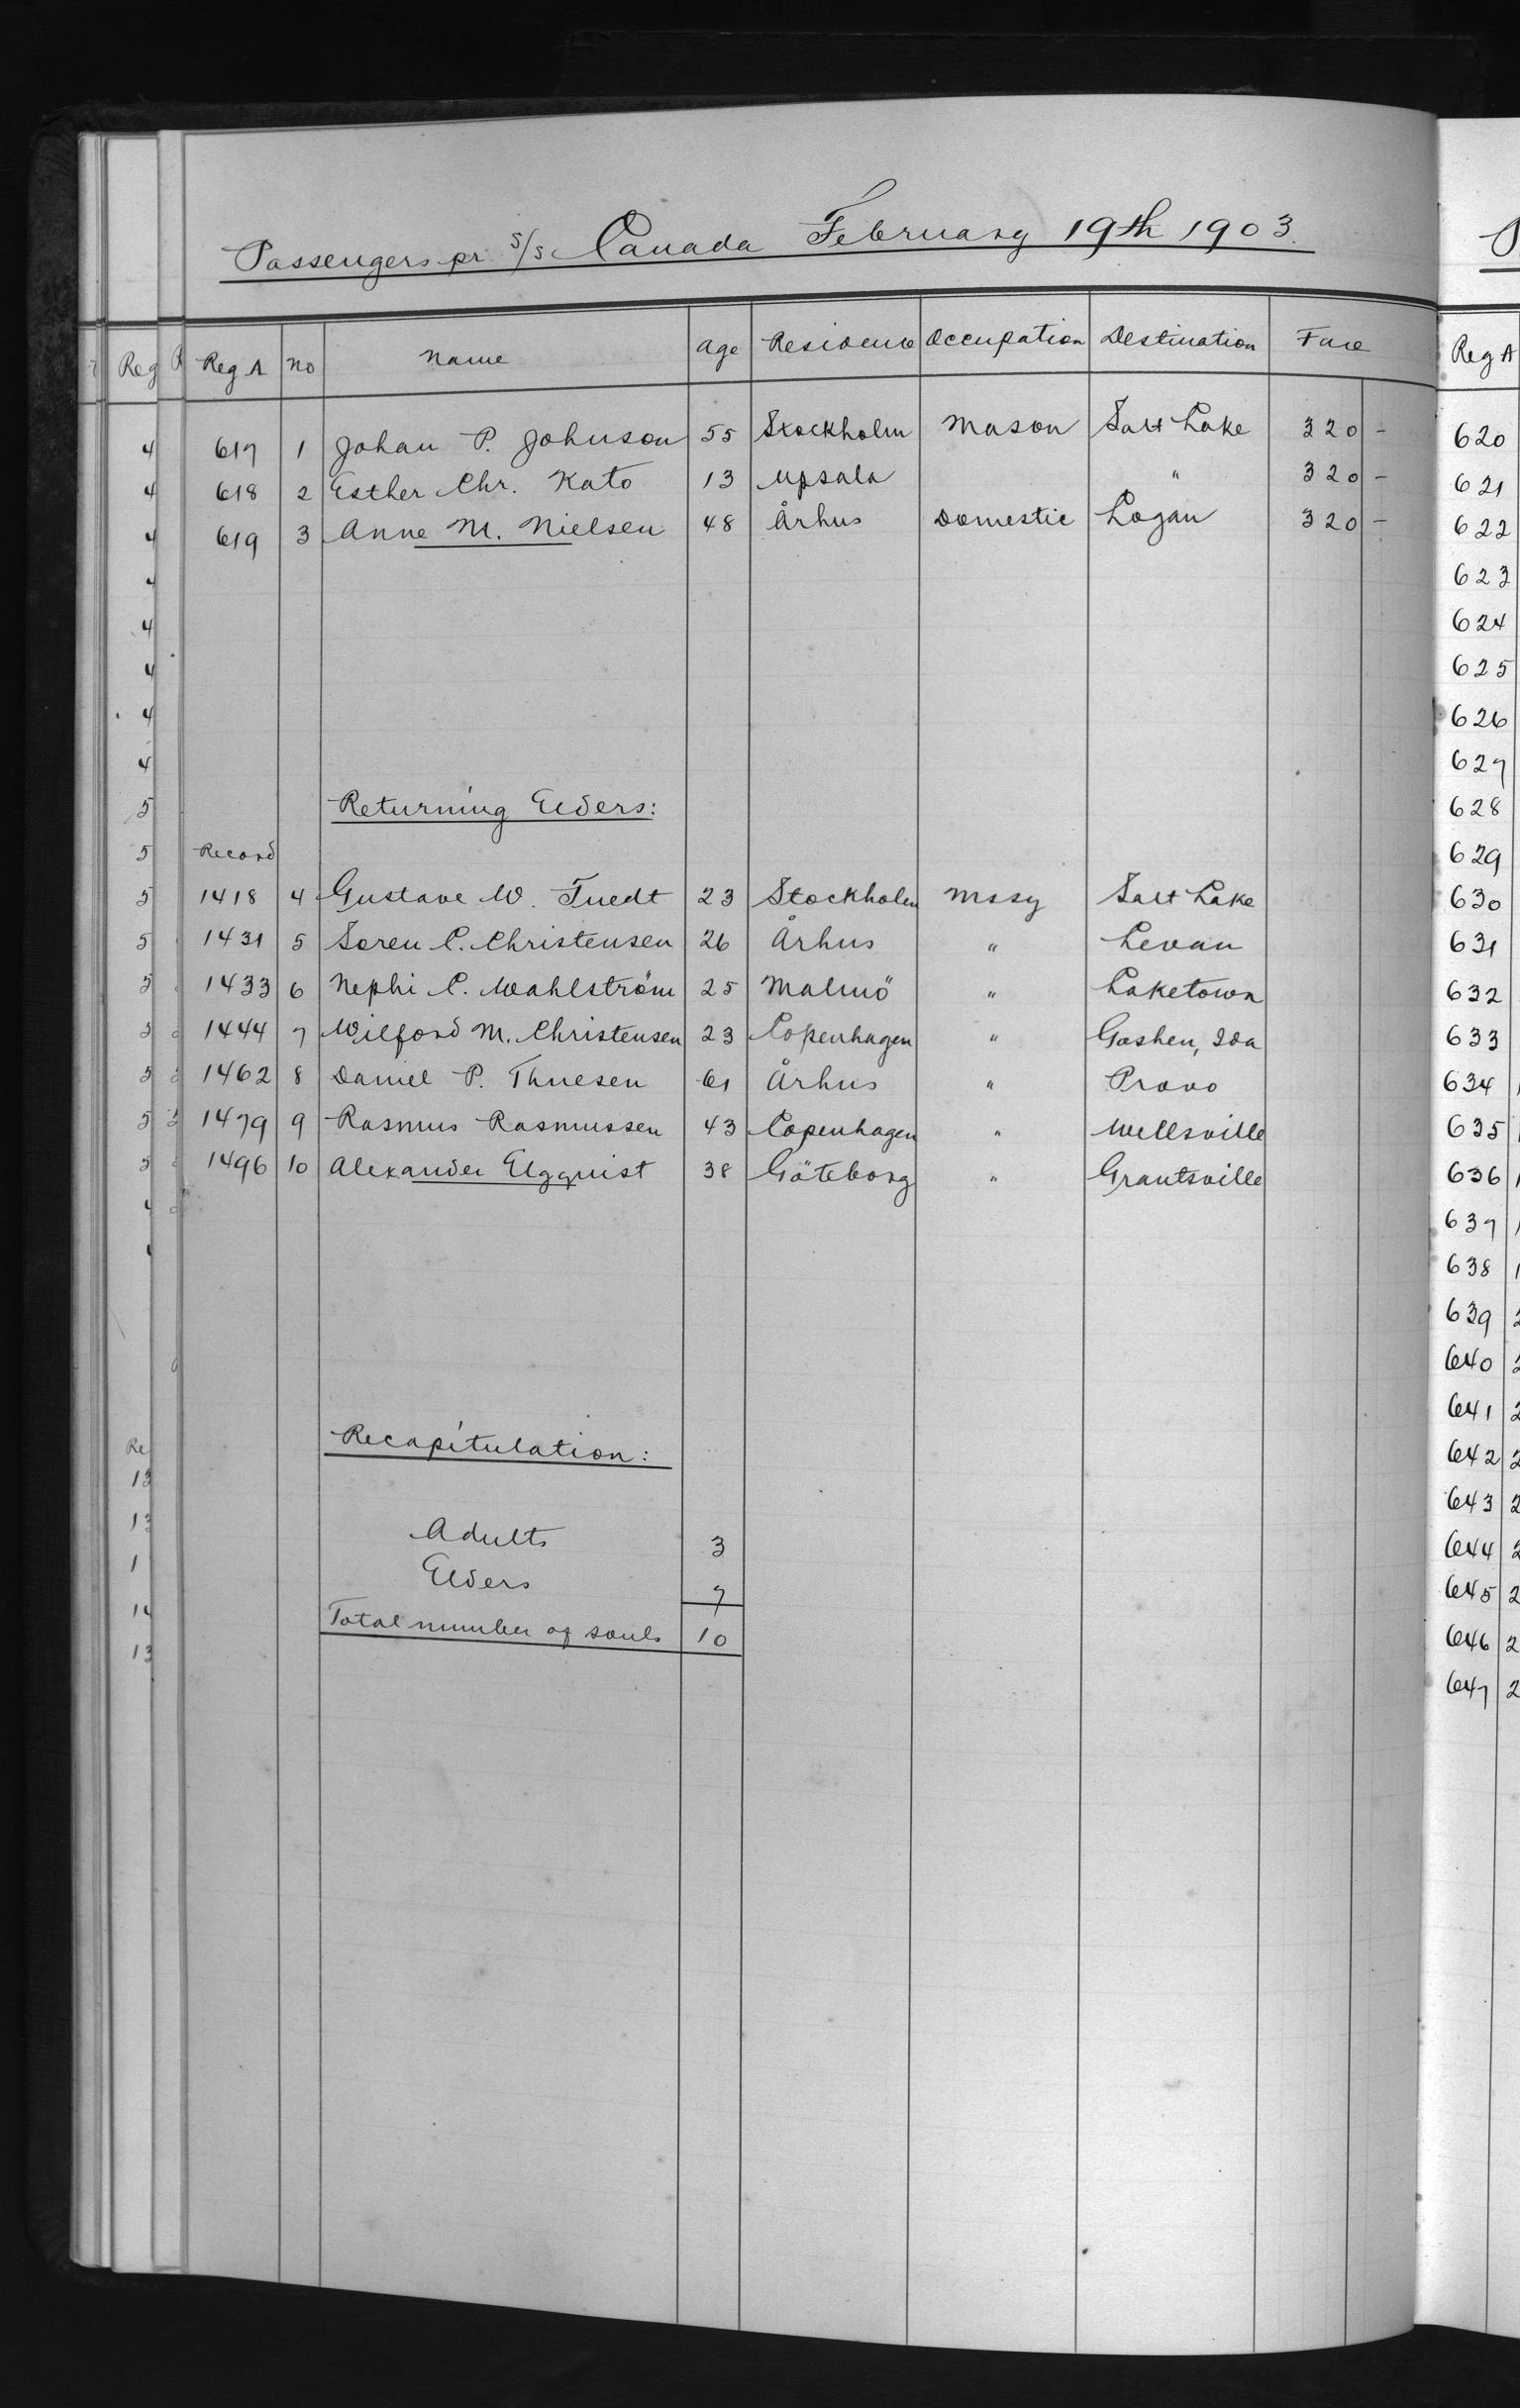 Passengers pr s/s Canada February 19th 1903.
Reg A No Name Age Residence Occupation Destination Fare
617 1 Johan P. Johnson 55 Stockholm Mason Salt Lake 320 -
618 2 Esther Chr. Kato 13 Upsala " 320 -
619 3 Anne M. Nielsen 48 Århus Domestic Logan 320 -
Returning Elders:
Record
1418 4 Gustave W. Tuedt 23 Stockholm Mssy Salt Lake
1431 5 Soren C. Christensen 26 Århus " Levan
1433 6 Nephi C. Wahlström 25 Malmö " Laketown
1444 7 Wilford M. Christensen 23 Copenhagen " Goshen, Ida
1462 8 Daniel P. Thuesen 61 Århus " Provo
1479 9 Rasmus Rasmussen 43 Copenhagen " Wellsville
1496 10 Alexander Elgquist 38 Göteborg " Grantsville
Recapitulation:
Adults 3
Elders 7
Total number of souls 10
Reg A
620
621
622
623
624
625
626
627
628
629
630
631
632
633
634
635
636
637
638
639
640
641
642
643
644
645
646
647